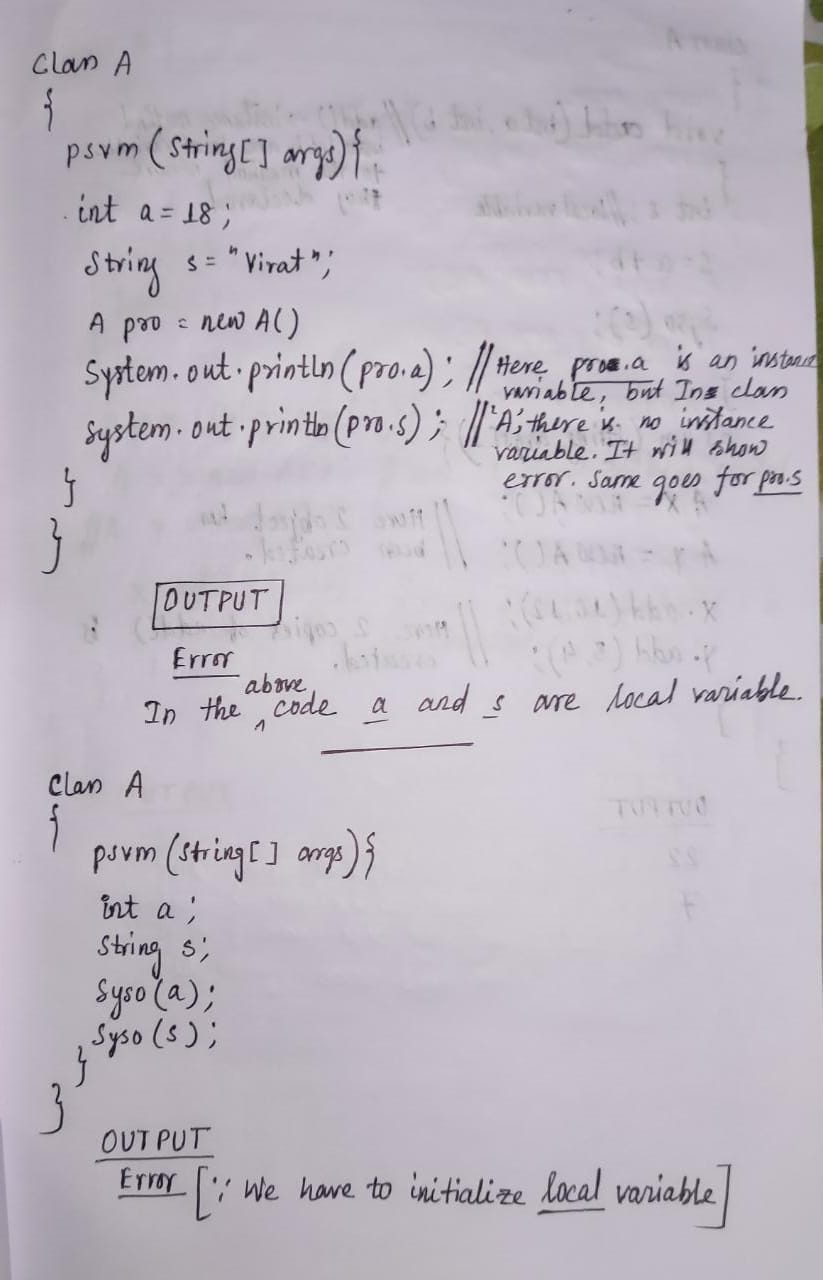 Class A
{
psvm (String[] args){
int a = 18;
String s = "Virat";
A pro = new A()
System.out.println(pro.a); // Here pro.a is an instance
variable, but In class
System.out.println(pro.s); // 'A', there is no instance
variable. It will show
error. Same goes for pro.s
}
}
OUTPUT
Error
In the above code a and s are local variable.
Class A
{
psvm (String[] args){
int a;
String s;
Syso(a);
Syso(s);
}
}
OUTPUT
Error [∵ We have to initialize local variable]